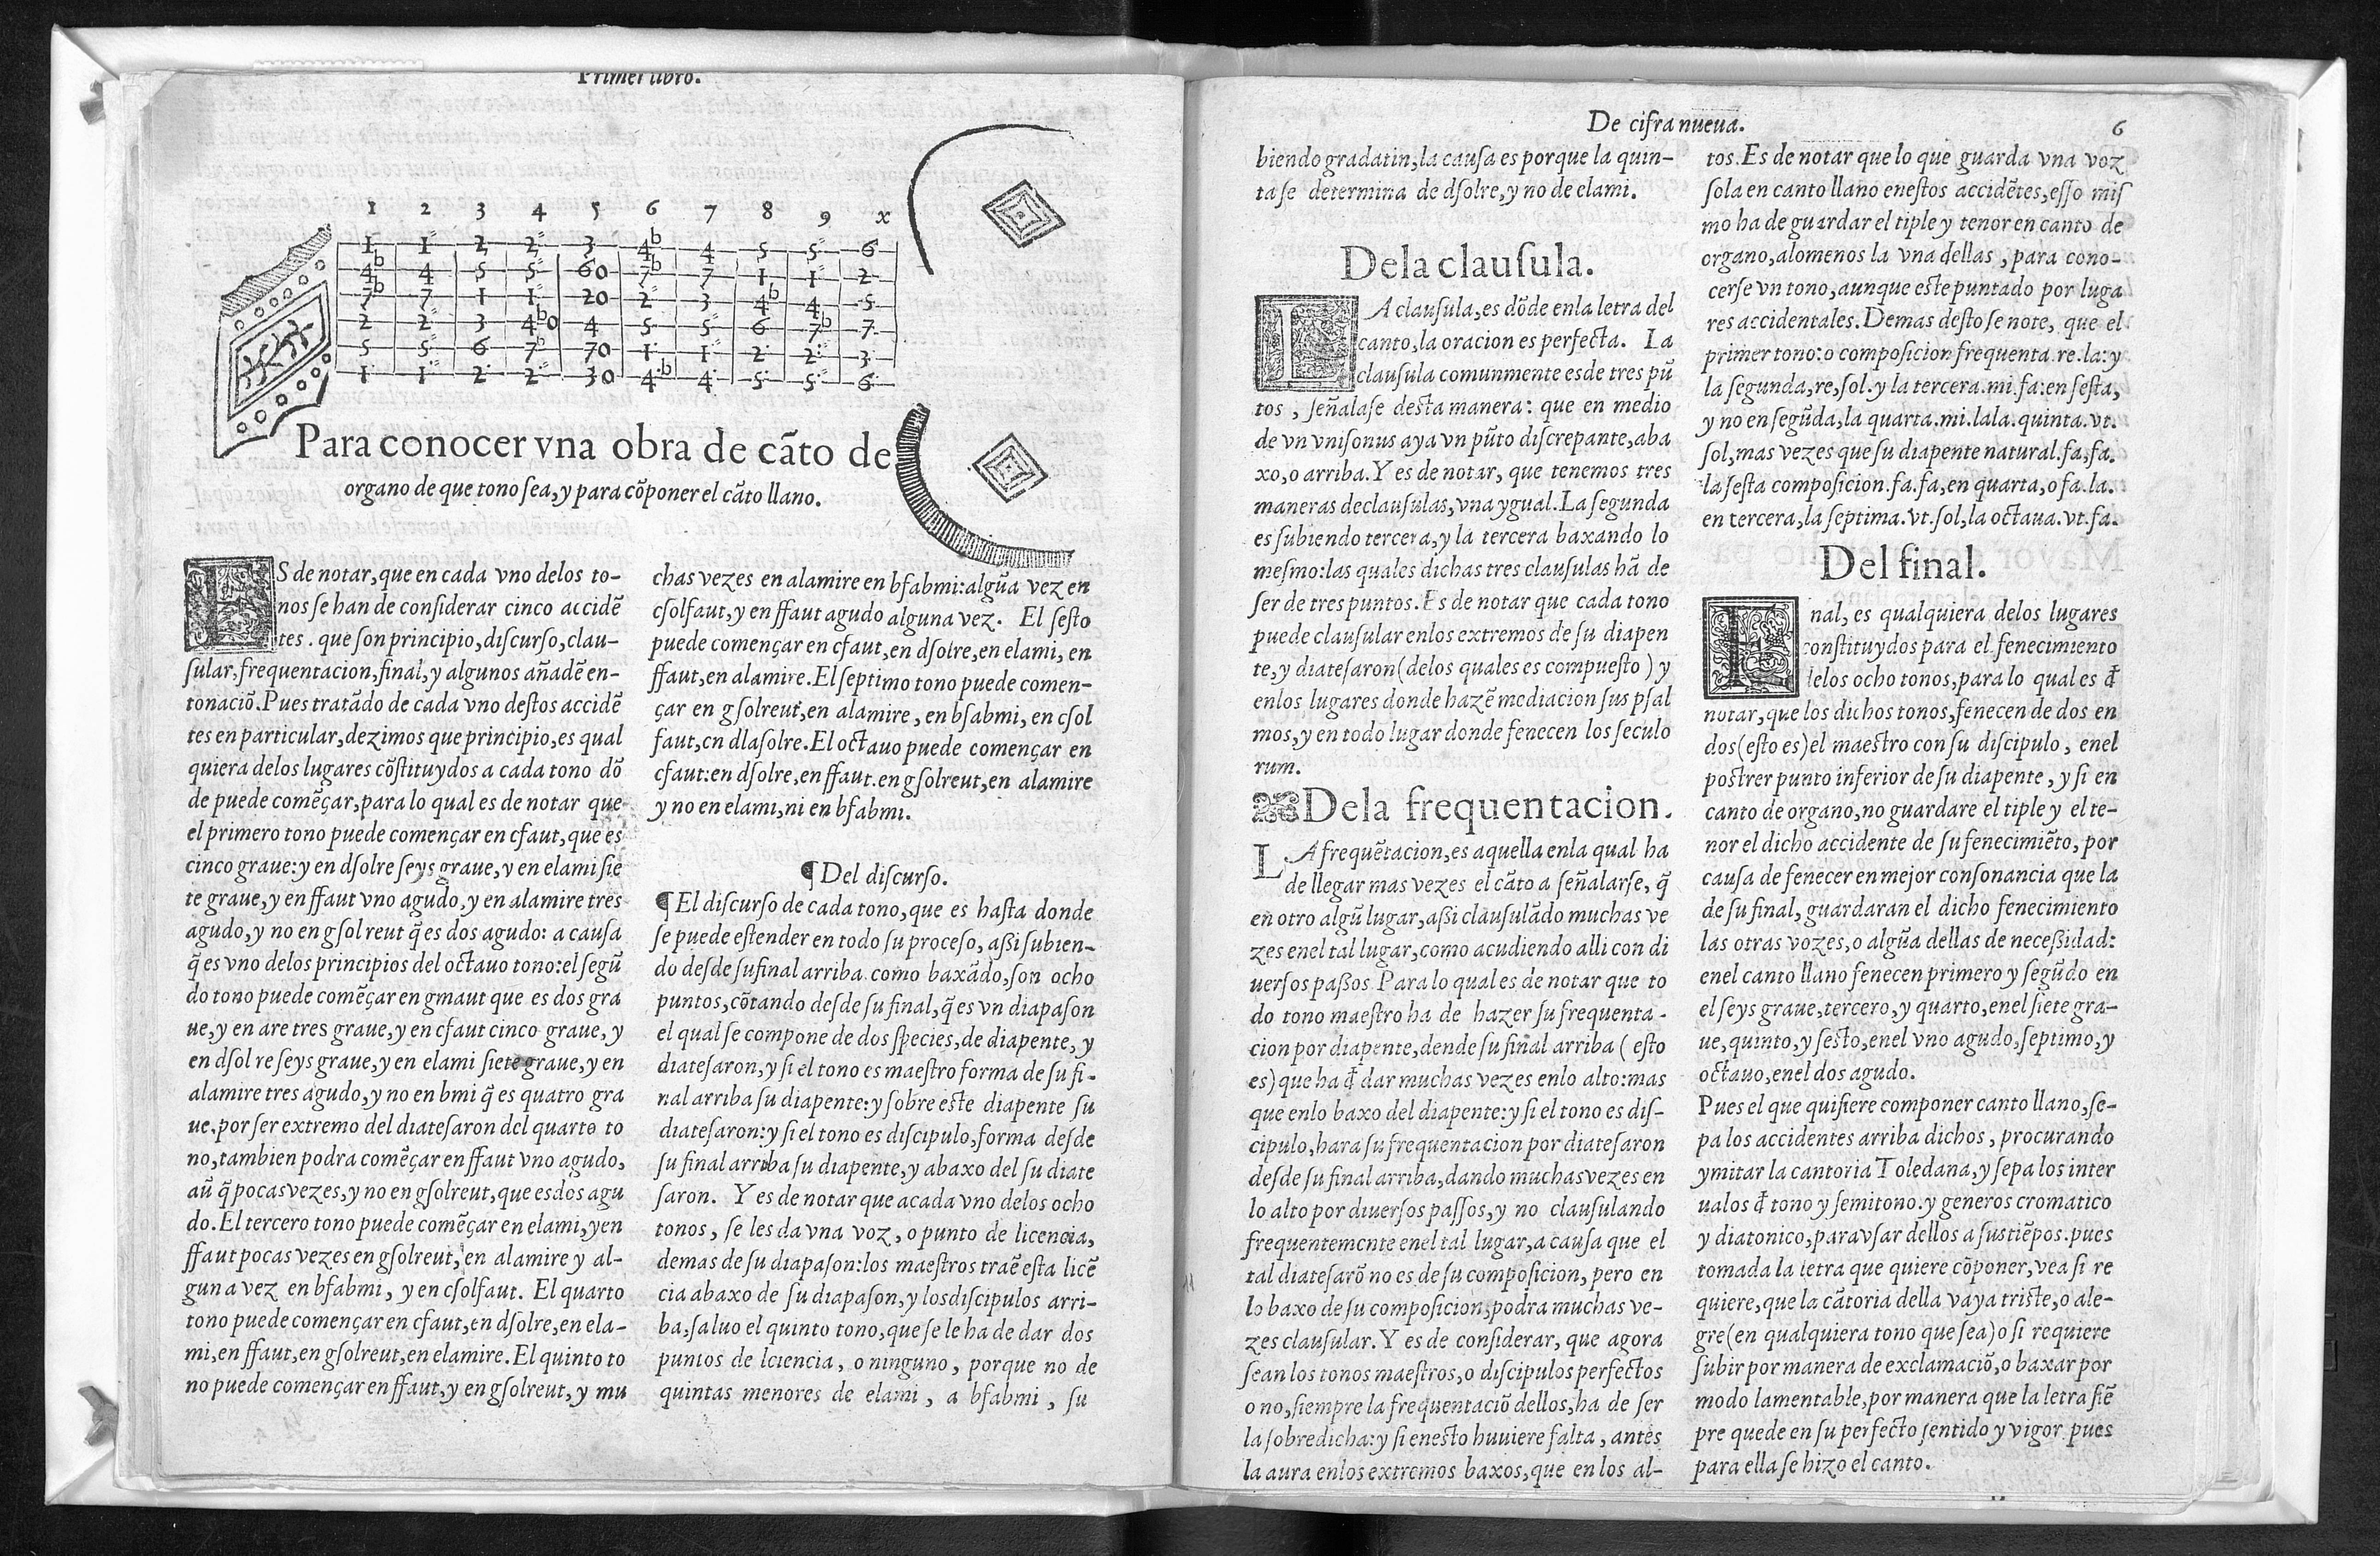 Primer libro.
1 2 3 4 5 6 7 8 9 x
1 1# 2 2# 3 4b 4 5 5# 6
4b 4 5 5# 60 7b 7 1 1# 2
7b 7 1 1# 20 2# 3 4b 4 5
2 2# 3 4b0 4 5 5# 6 7b 7
5 5# 6 7b 70 1 1# 2 2# 3
1 1# 2 2# 30 4b 4 5 5# 6
Para conocer vna obra de cãto de
organo de que tono sea, y para cõponer el cãto llano.
ES de notar, que en cada vno delos to-
nos se han de considerar cinco accidẽ
tes. que son principio, discurso, clau-
sular, frequentacion, final, y algunos añadẽ en-
tonaciõ. Pues tratãdo de cada vno destos accidẽ
tes en particular, dezimos que principio, es qual
quiera delos lugares cõstituydos a cada tono dõ
de puede comẽçar, para lo qual es de notar que
el primero tono puede començar en cfaut, que es
cinco graue: y en dsolre seys graue, y en elami sie
te graue, y en ffaut vno agudo, y en alamire tres
agudo, y no en gsolreut q̃ es dos agudo: a causa
q̃ es vno delos principios del octauo tono: el segũ
do tono puede comẽçar en gmaut que es dos gra
ue, y en are tres graue, y en cfaut cinco graue, y
en dsolre seys graue, y en elami siete graue, y en
alamire tres agudo, y no en bmi q̃ es quatro gra
ue, por ser extremo del diatesaron del quarto to
no, tambien podra comẽçar en ffaut vno agudo,
aũ q̃ pocas vezes, y no en gsolreut, que es dos agu
do. El tercero tono puede comẽçar en elami, y en
ffaut pocas vezes en gsolreut, en alamire y al-
guna vez en bfabmi, y en csolfaut. El quarto
tono puede començar en cfaut, en dsolre, en ela-
mi, en ffaut, en gsolreut, en elamire. El quinto to
no puede començar en ffaut, y en gsolreut, y mu
chas vezes en alamire en bfabmi: algũa vez en
csolfaut, y en ffaut agudo alguna vez. El sesto
puede començar en cfaut, en dsolre, en elami, en
ffaut, en alamire. El septimo tono puede comen-
çar en gsolreut, en alamire, en bfabmi, en csol
faut, en dlasolre. El octauo puede començar en
cfaut: en dsolre, en ffaut. en gsolreut, en alamire
y no en elami, ni en bfabmi.
¶ Del discurso.
¶ El discurso de cada tono, que es hasta donde
se puede estender en todo su proceso, assi subien-
do desde su final arriba como baxãdo, son ocho
puntos, cõtando desde su final, q̃ es vn diapason
el qual se compone de dos species, de diapente, y
diatesaron, y si el tono es maestro forma de su fi-
nal arriba su diapente: y sobre este diapente su
diatesaron: y si el tono es discipulo, forma desde
su final arriba su diapente, y abaxo del su diate
saron. Y es de notar que acada vno delos ocho
tonos, se les da vna voz, o punto de licencia,
demas de su diapason: los maestros traẽ esta licẽ
cia abaxo de su diapason, y los discipulos arri-
ba, saluo el quinto tono, que se le ha de dar dos
puntos de lciencia, o ninguno, porque no de
quintas menores de elami, a bfabmi, su
De cifra nueua.
6
biendo gradatin, la causa es porque la quin-
ta se determina de dsolre, y no de elami.
Dela clausula.
LA clausula, es dõde enla letra del
canto, la oracion es perfecta. La
clausula comunmente es de tres pũ
tos, señalase desta manera: que en medio
de vn vnisonus aya vn pũto discrepante, aba
xo, o arriba. Y es de notar, que tenemos tres
maneras declausulas, vna ygual. La segunda
es subiendo tercera, y la tercera baxando lo
mesmo: las quales dichas tres clausulas hã de
ser de tres puntos. Es de notar que cada tono
puede clausular enlos extremos de su diapen
te, y diatesaron (delos quales es compuesto) y
enlos lugares donde hazẽ mediacion sus psal
mos, y en todo lugar donde fenecen los seculo
rum.
Dela frequentacion.
LA frequẽtacion, es aquella enla qual ha
de llegar mas vezes el cãto a señalarse, q̃
en otro algũ lugar, assi clausulãdo muchas ve
zes enel tal lugar, como acudiendo alli con di
uersos passos. Para lo qual es de notar que to
do tono maestro ha de hazer su frequenta-
cion por diapente, dende su final arriba (esto
es) que ha d̃ dar muchas vezes enlo alto: mas
que enlo baxo del diapente: y si el tono es dis-
cipulo, hara su frequentacion por diatesaron
desde su final arriba, dando muchas vezes en
lo alto por diuersos passos, y no clausulando
frequentemente enel tal lugar, a causa que el
tal diatesarõ no es de su composicion, pero en
lo baxo de su composicion, podra muchas ve-
zes clausular. Y es de considerar, que agora
sean los tonos maestros, o discipulos perfectos
o no, siempre la frequentaciõ dellos, ha de ser
la sobredicha: y si enesto huuiere falta, antes
la aura enlos extremos baxos, que en los al-
tos. Es de notar que lo que guarda vna voz
sola en canto llano enestos accidẽtes, esso mis
mo ha de guardar el tiple y tenor en canto de
organo, alomenos la vna dellas, para cono-
cerse vn tono, aunque este puntado por luga
res accidentales. Demas desto se note, que el
primer tono: o composicion frequenta. re. la: y
la segunda, re, sol. y la tercera. mi. fa: en sesta,
y no en segũda, la quarta. mi. la la. quinta. vt.
sol, mas vezes que su diapente natural. fa, fa.
la sesta composicion. fa. fa, en quarta, o fa. la.
en tercera, la septima. vt. sol, la octaua. vt. fa.
Del final.
FInal, es qualquiera delos lugares
constituydos para el fenecimiento
delos ocho tonos, para lo qual es d̃
notar, que los dichos tonos, fenecen de dos en
dos (esto es) el maestro con su discipulo, enel
postrer punto inferior de su diapente, y si en
canto de organo, no guardare el tiple y el te-
nor el dicho accidente de su fenecimiẽto, por
causa de fenecer en mejor consonancia que la
de su final, guardaran el dicho fenecimiento
las otras vozes, o algũa dellas de necessidad:
enel canto llano fenecen primero y segũdo en
el seys graue, tercero, y quarto, enel siete gra-
ue, quinto, y sesto, enel vno agudo, septimo, y
octauo, enel dos agudo.
Pues el que quisiere componer canto llano, se-
pa los accidentes arriba dichos, procurando
ymitar la cantoria Toledana, y sepa los inter
ualos d̃ tono y semitono. y generos cromatico
y diatonico, para vsar dellos a sus tiẽpos. pues
tomada la letra que quiere cõponer, vea si re
quiere, que la cãtoria della vaya triste, o ale-
gre (en qualquiera tono que sea) o si requiere
subir por manera de exclamaciõ, o baxar por
modo lamentable, por manera que la letra siẽ
pre quede en su perfecto sentido y vigor pues
para ella se hizo el canto.